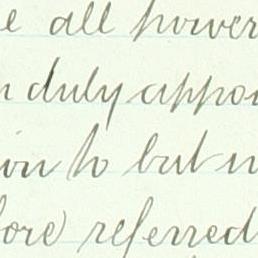 e all power
n duly appoi
ion to but n
fore referred